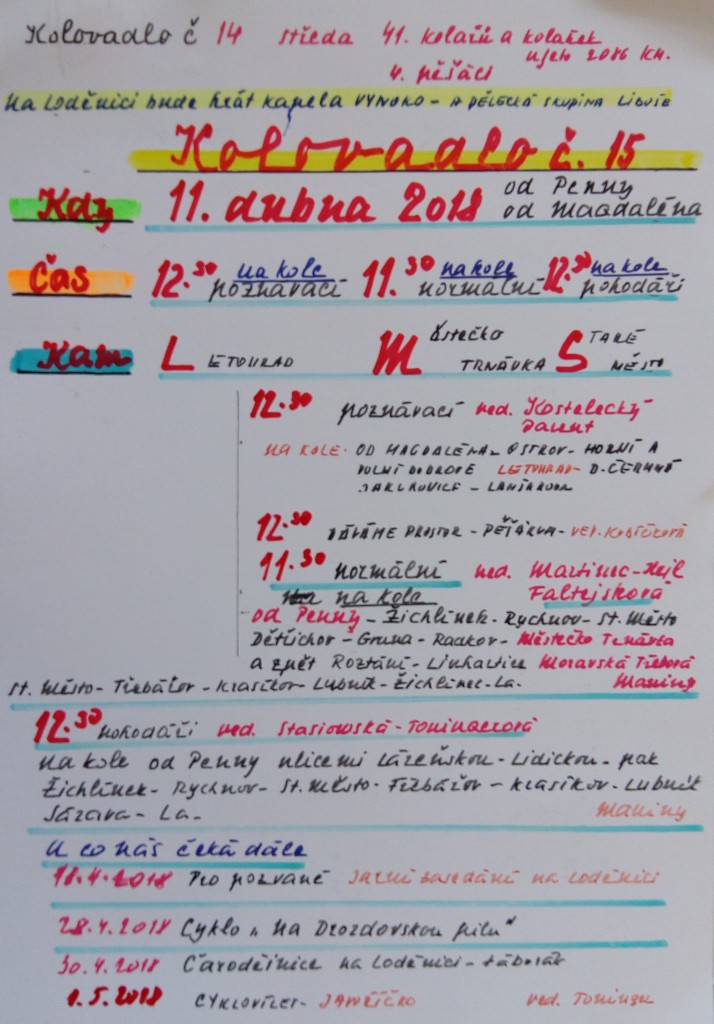 Kolovadlo č 14 středa 41. kolařů a kolařek
ujeto 2086 KM.
4. pěšáci
Na Loděnici bude hrát kapela VYNOKO - A PĚVECKÁ SKUPINA LIBUŠE
Kolovadlo č. 15
Kdy 11. dubna 2018 od Penny
od Magdaléna
Čas 12.30 na kole 11.30 na kole 12.30 na kole
poznávací normální pohodáři
Kam LETOHRAD Městečko TRNÁVKA STARÉ MĚSTO
12.30 poznávací ved. Kostelecký
Parent
NA KOLE - OD MAGDALÉNA - OSTROV - HORNÍ A
DOLNÍ DOBROUČ LETOHRAD - D. ČERMNÁ
JAKUBOVICE - LANŠKROUN
12.30 DÁVÁME PROSTOR - PĚŠÁKŮM - VED.
11.30 normální ved. Martinec - Hejl
na kole Faltejsková
od Penny - Žichlínek - Rychnov - St. Město
Dětřichov - Gruna - Radkov - Městečko Trnávka
a zpět Rozstání - Linhartice Moravská Třebová
St. Město - Třebařov - Krasíkov - Lubník - Žichlínek - La. Maniny
12.30 pohodáři ved. Stasiowská - Tominzerová
na kole od Penny ulicemi Lázeňskou - Lidickou - pak
Žichlínek - Rychnov - St. Město - Třebařov - Krasíkov - Lubník
Sázava - La. Maniny
A co nás čeká dále
18.4.2018 Pro pozvané Jarní zasedání na Loděnici
28.4.2018 Cyklo „Na Drozdovskou pilu"
30.4.2018 Čarodějnice na Loděnici - táborák
1.5.2018 CYKLOVÝLET - JAVOŘÍČKO ved. Tominzu